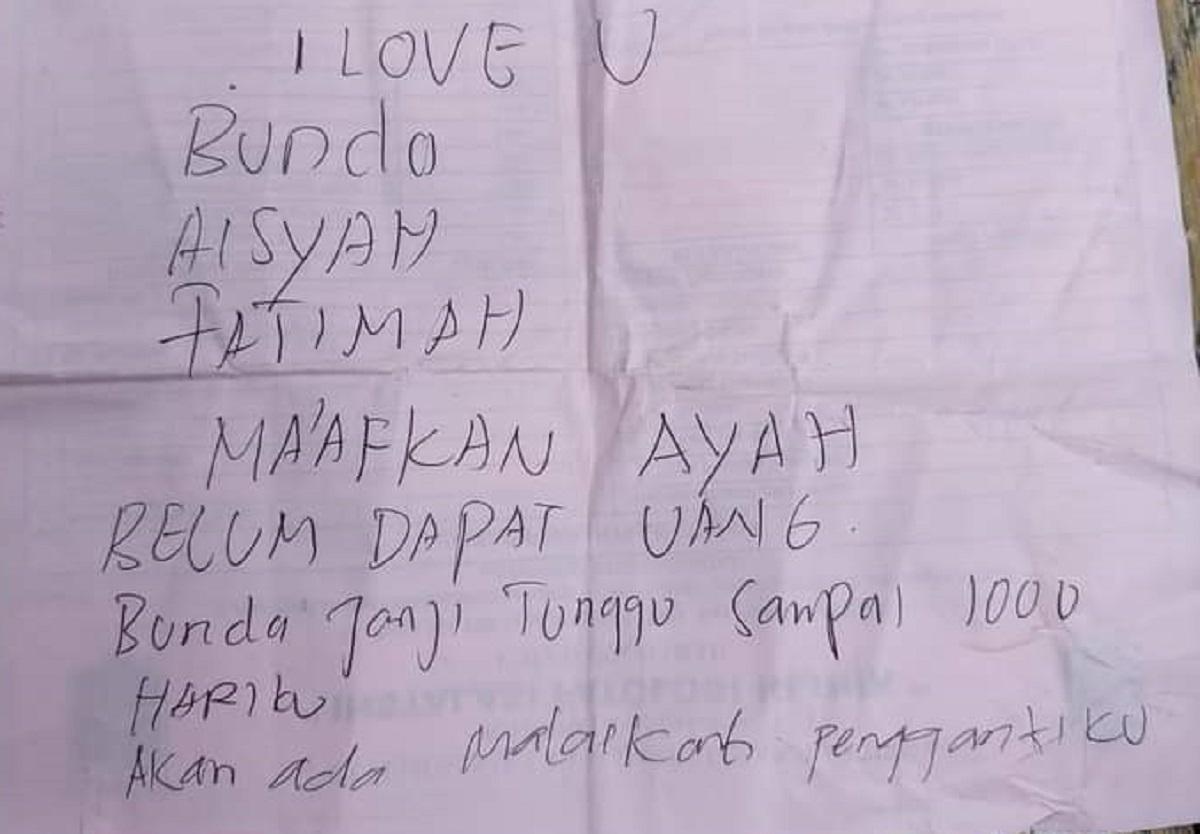 I LOVE U
Bunda
AISYAH
FATIMAH
MA'AFKAN AYAH
BELUM DAPAT UANG.
Bunda Janji Tunggu Sampai 1000
HARIku
AKan ada Malaikat penggantiku